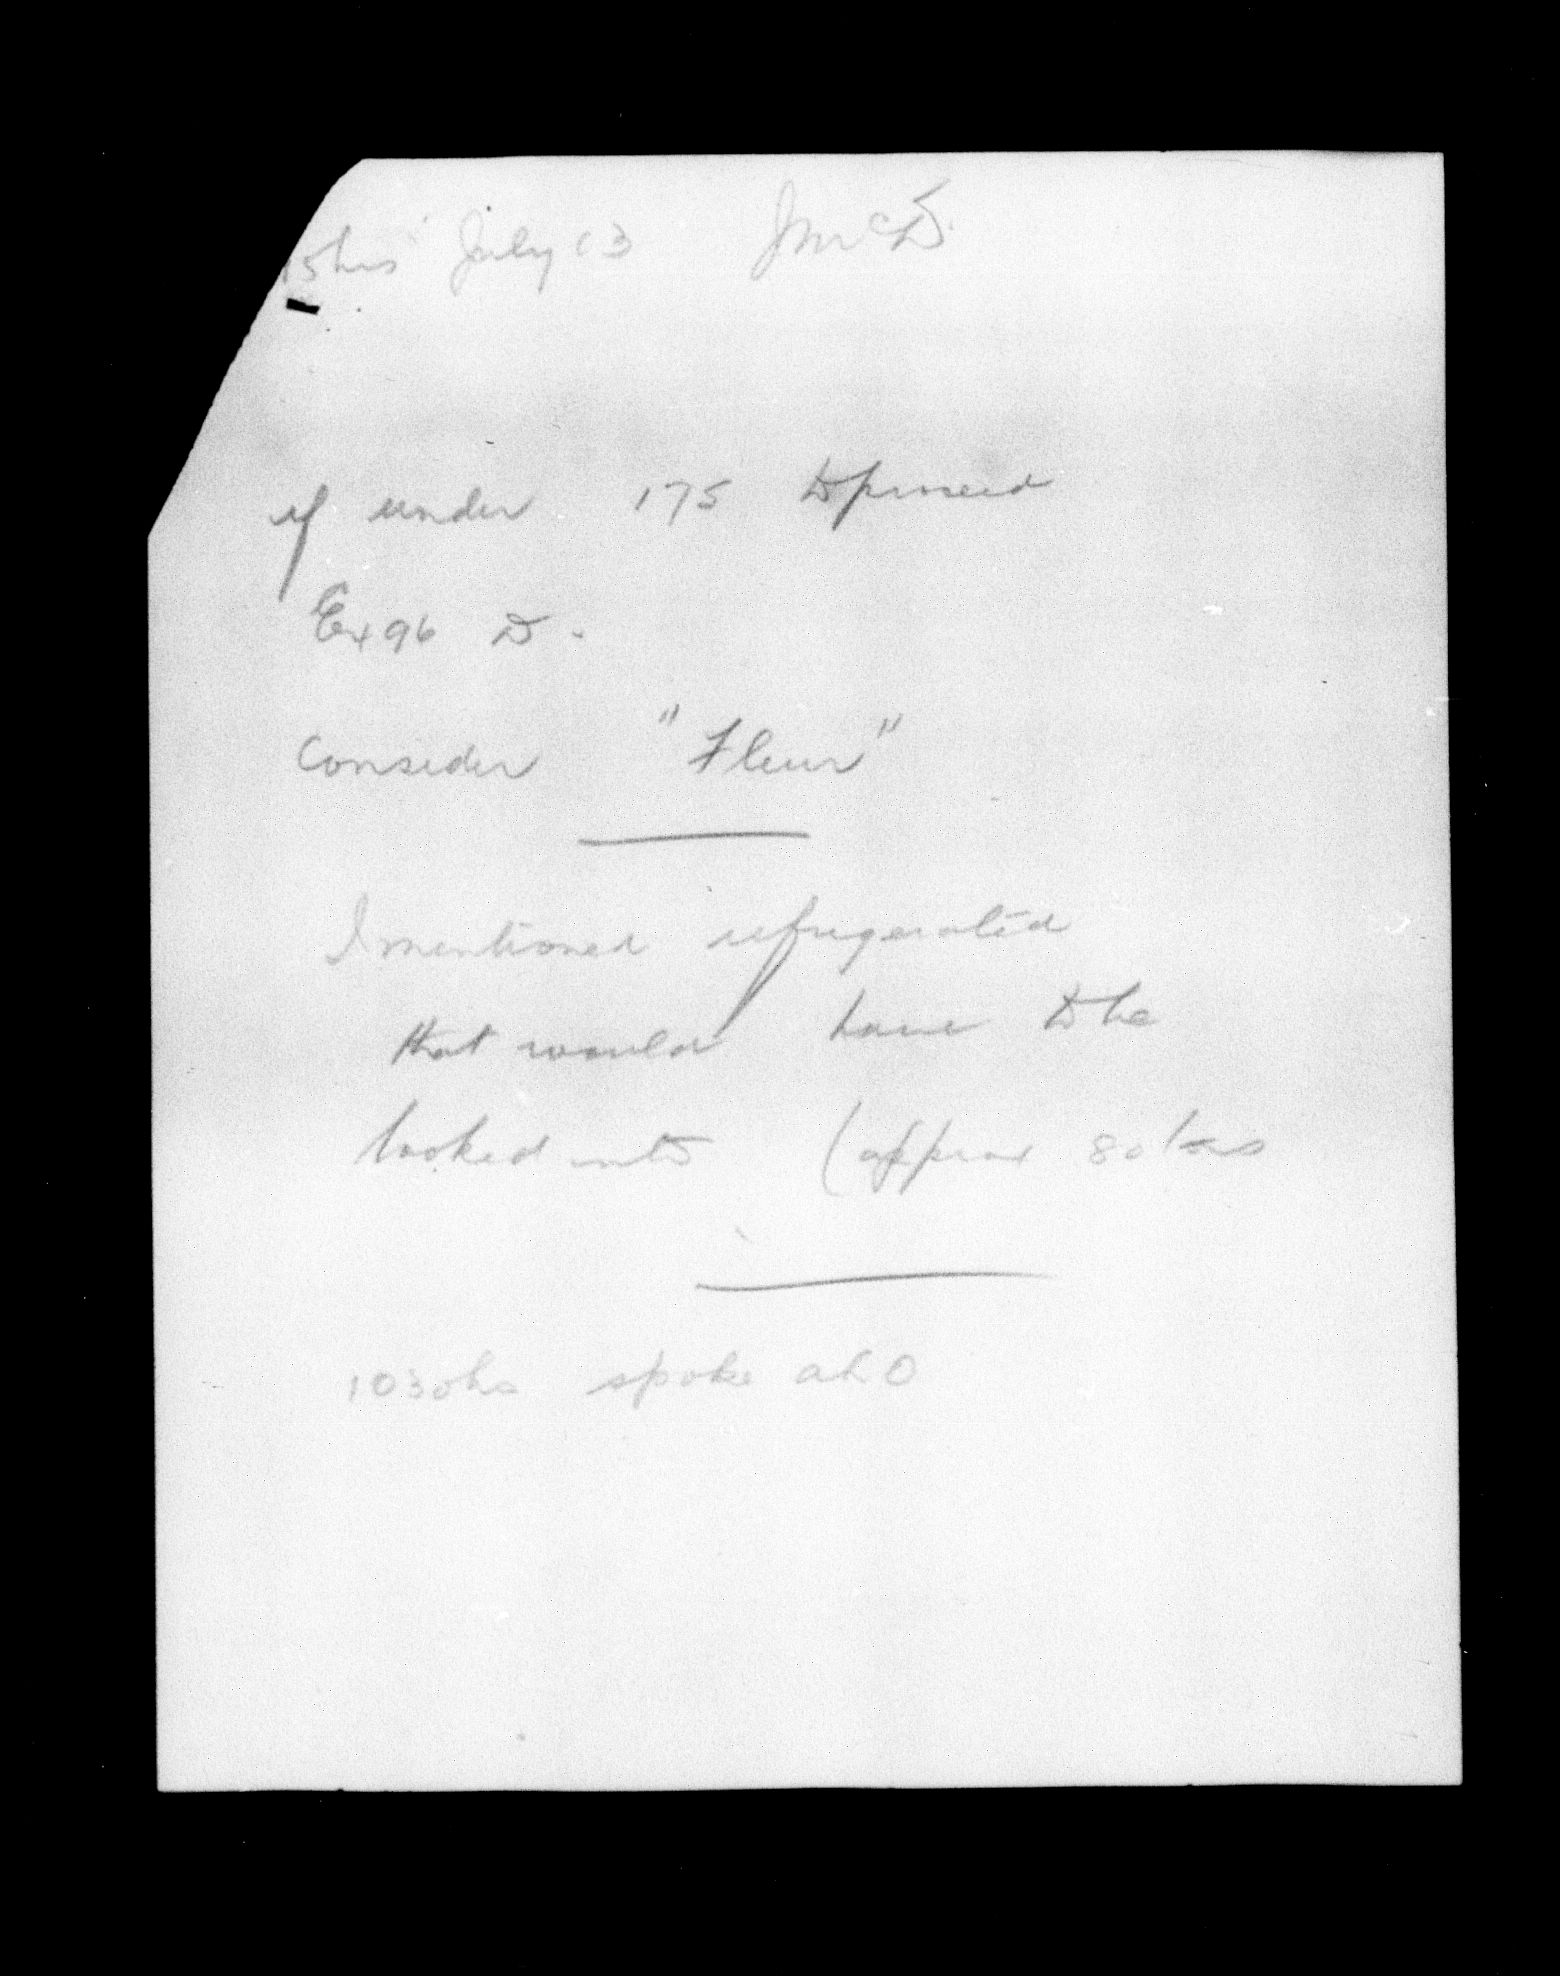 15hrs July 13 JMcD.
if under 175 to proceed
Ex 96 D.
Consider "Fleur"
I mentioned refrigerated
that would have to be
looked into (approx 80
1030hrs spoke